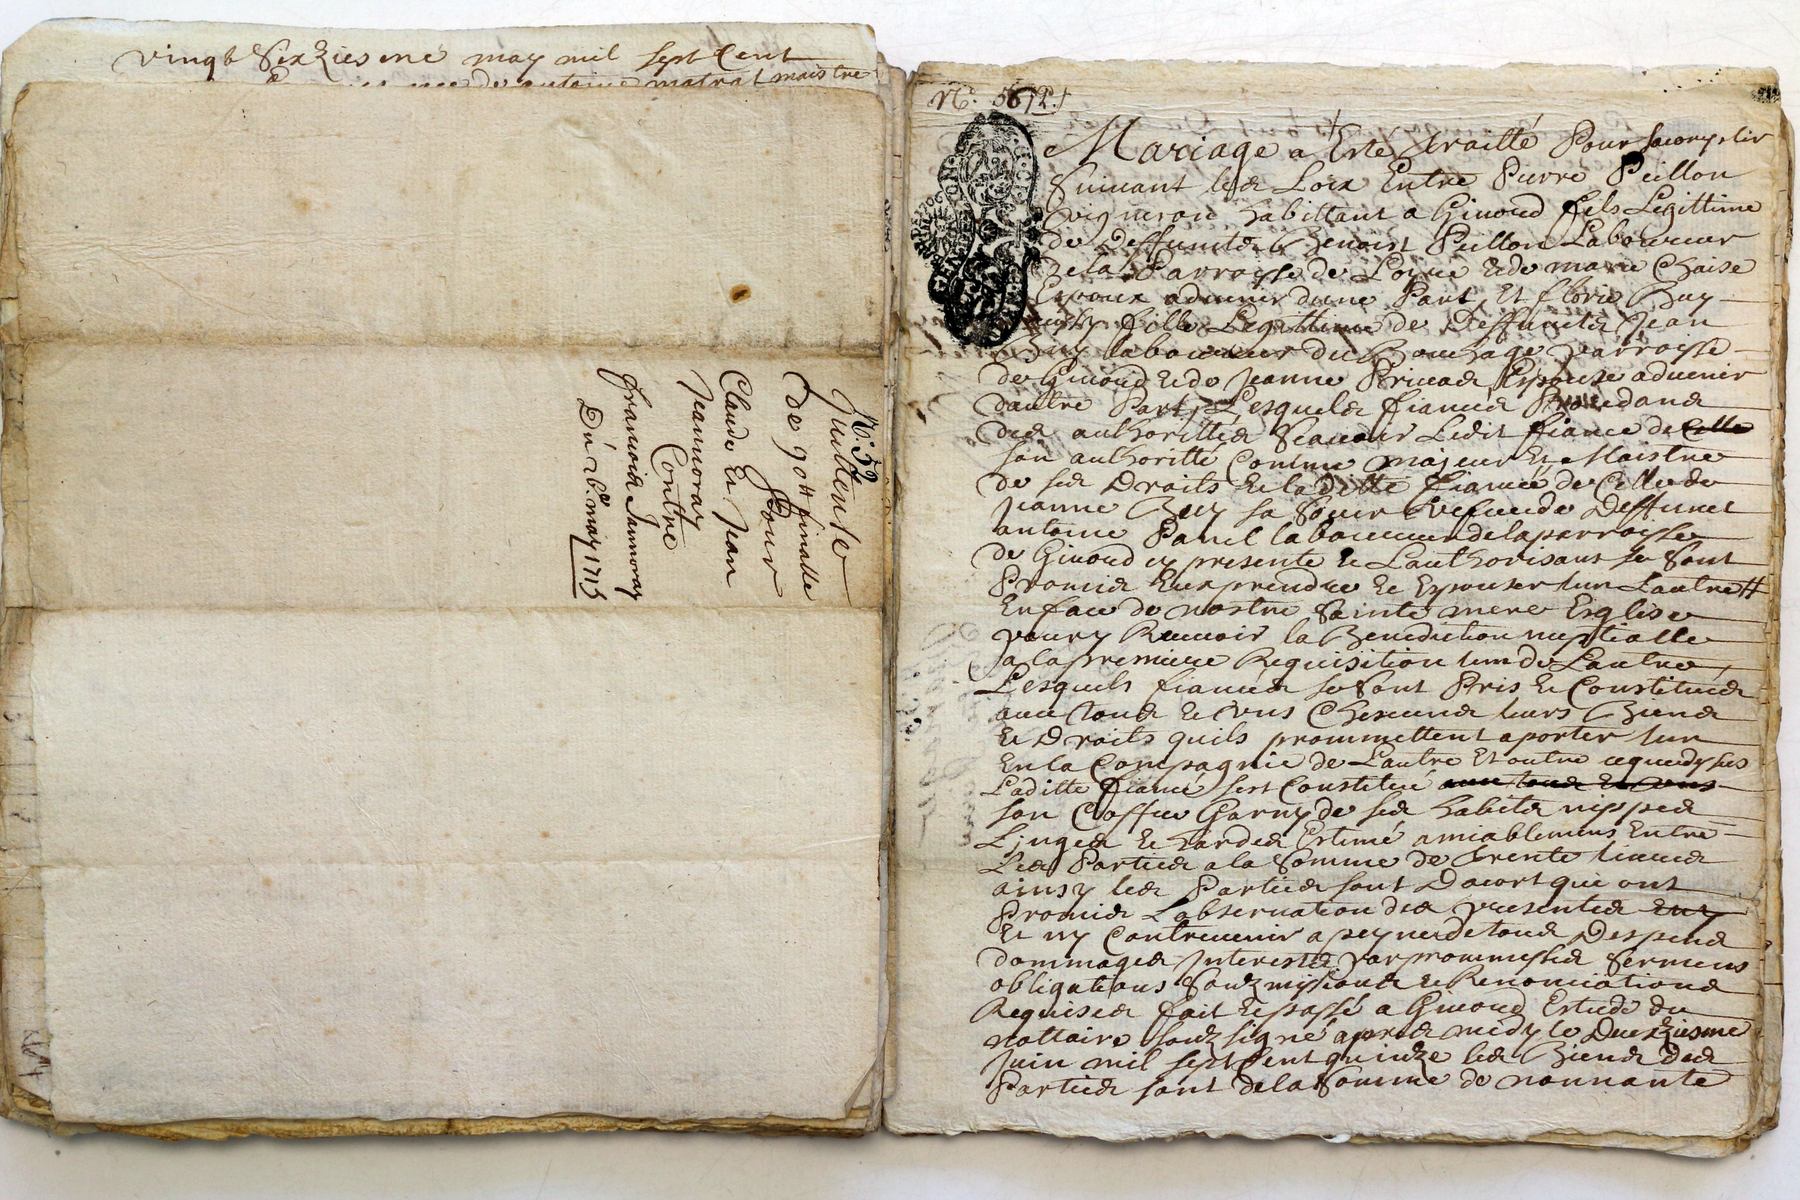 vingt Sixziesme may mil sept Cent
de antoine matrat maistre
N.° 52
Quittence
de 90tt finalle
Pour
Claude Et Jean
Jeanmoray
Contre
francois Janmoray
Du 26.e may 1715
N.° 56
Mariage a Esté traitté Pour
Suivant les Loix Entre Pierre Peillon
vigneron habittant a Givord fils Legittime
de Deffunctes Benoist Peillon Laboureur
de la Parroysse de Loyre & de marie Chaise
Epoux advenir dune Part, Et florie Buy
fille Legittime de Deffuncts Jean
Buy laboureur du Bouchage parroysse
de Givord & de Jeanne Privas Espouse advenir
dautre Part, Lesquels fiancés Procedans
des authorittés Scavoir Ledit fiancé de celle
son authoritté Comme majeur & Maistre
de ses Droits & la ditte fiancée de Celle de
Jeanne Buy sa Soeur vefve de Deffunct
antoine Pavil laboureur de la parroisse
de Givord cy presente & Lauthorisant se sont
Promis Eux prendre & Epouser lun Lautre #
En face de nostre Sainte mere Esglise
pour y Recevoir la Benediction nuptialle
a la premiere Requisition lun de Lautre,
Lesquels fiancés se sont Pris & Constitués
avec tous & uns Chescuns leurs Biens
& Droits quils prommettent aporter lun
En la Compagnie de Lautre Et outre ce que dessus
Laditte fiancé sest Constitué avec tous Et uns
son Coffre Garny de ses habits nippes
Linges & hardes Estimé amiablement Entre
Les Parties a la Somme de trente livres
ainsy les Parties sont Dacort qui ont
Promis Lobservation des presentes
& ny Contrevenir a peyne de tous Despens
dommages Interests par prommesses Sermens
obligations Soubzmissions & Renonciations
Requises fait & passé a Givord Estude du
nottaire soubzsigné apres midy le
Juin mil sept Cent quinze les Biens des
Parties sont de la Somme de nonnante